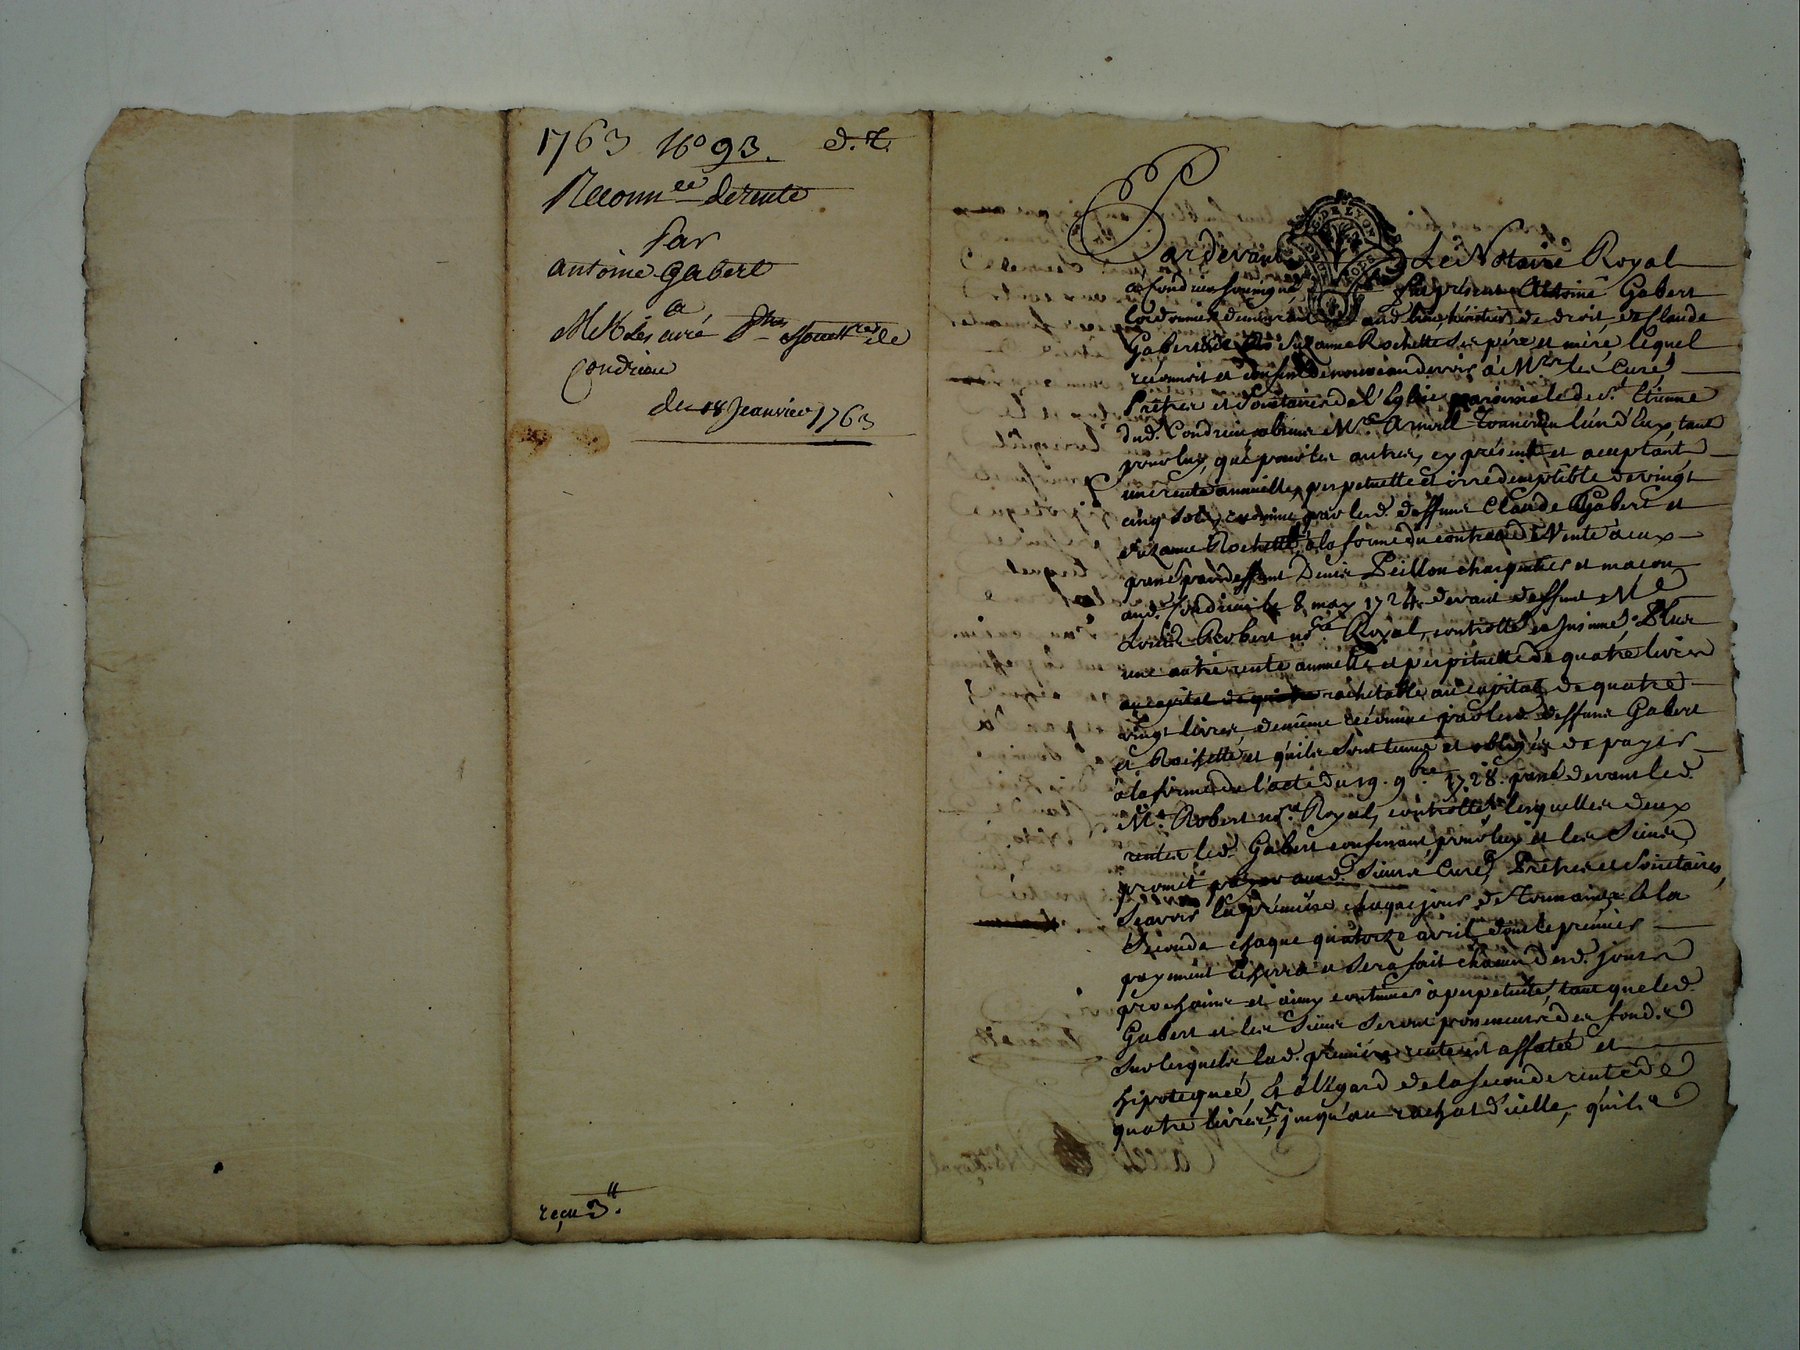 1763 No 93. d. R.
Reconn.ce de rente
Par
antoine Gabert
a
MM Les curé Ptres Societ.res de
Condrieu
du 18 Janvier 1763
reçu 3.tt
GEN. DE LYON
Pardevant Le Notaire Royal
a Condrieu soussigné fut présent Antoine Gabert
Cordonnier demeurant aud. lieu, héritier de droit, de Claude
Gabert et de Suzanne Rochette ses père et mère, lequel
reconnoit et confesse de nouveau devoir à M.rs les Curé
Prêtres et Societaires de l'Eglise paroissiale de s.t Etienne
dud. Condrieu, M.e l'un d'Eux, tant
pour luy, que pour les autres, cy présent et acceptant
une rente annuelle, perpetuelle et irredemptible de vingt
cinq sols, reconnue par lesd. deffuns Claude Gabert et
Suzanne Rochette, à la forme du contract de Vente à eux
passé par deffunt Denis Peillon charpentier et maçon
aud. Condrieu le 8 may 1724. devant deffunt M.e
Robert no.re Royal, controllé et Insinué. Plus
une autre rente annuelle et perpetuelle de quatre livres
au capital de rachetable au capital de quatre
vingt livres, de même reconnue par lesd. deffuns Gabert
et Rochette et qu'ils sont tenus et obligés de payer
à la forme de l'acte du 19. 9.bre 1728. passé devant led.
M.e Robert no.re Royal, controllé, lesquelles deux
rentes led. Gabert confessant, pour luy et les Siens,
promet payer ausd. Sieurs Curé, Prêtres et Societaires,
Sçavoir la première chaque jour de et la
Seconde chaque quatorze avril, dont le premier
payement Echerra et sera fait chacun desd. jours
prochains et ainsy continuer à perpetuité, tant que led.
Gabert et les Siens seront possesseurs des fonds
sur lesquels lad. première rente est affectée et
hipotequée, Et à l'Egard de la seconde rente de
quatre livres, jusqu'au rachat d'icelle, qu'ils